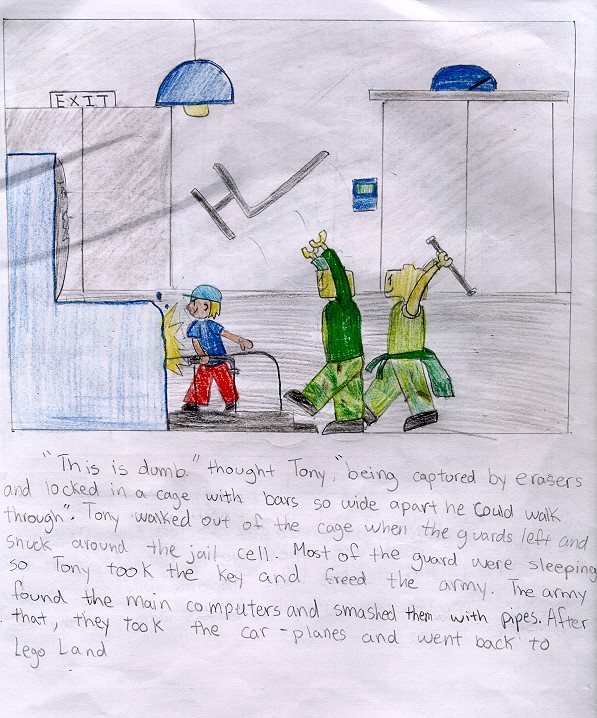 EXIT
"This is dumb." thought Tony, "being captured by erasers
and locked in a cage with bars so wide apart he could walk
through". Tony walked out of the cage when the guards left and
snuck around the jail cell. Most of the guard were sleeping
so Tony took the key and freed the army. The army
found the main computers and smashed them with pipes. After
that, they took the car-planes and went back to
Lego Land